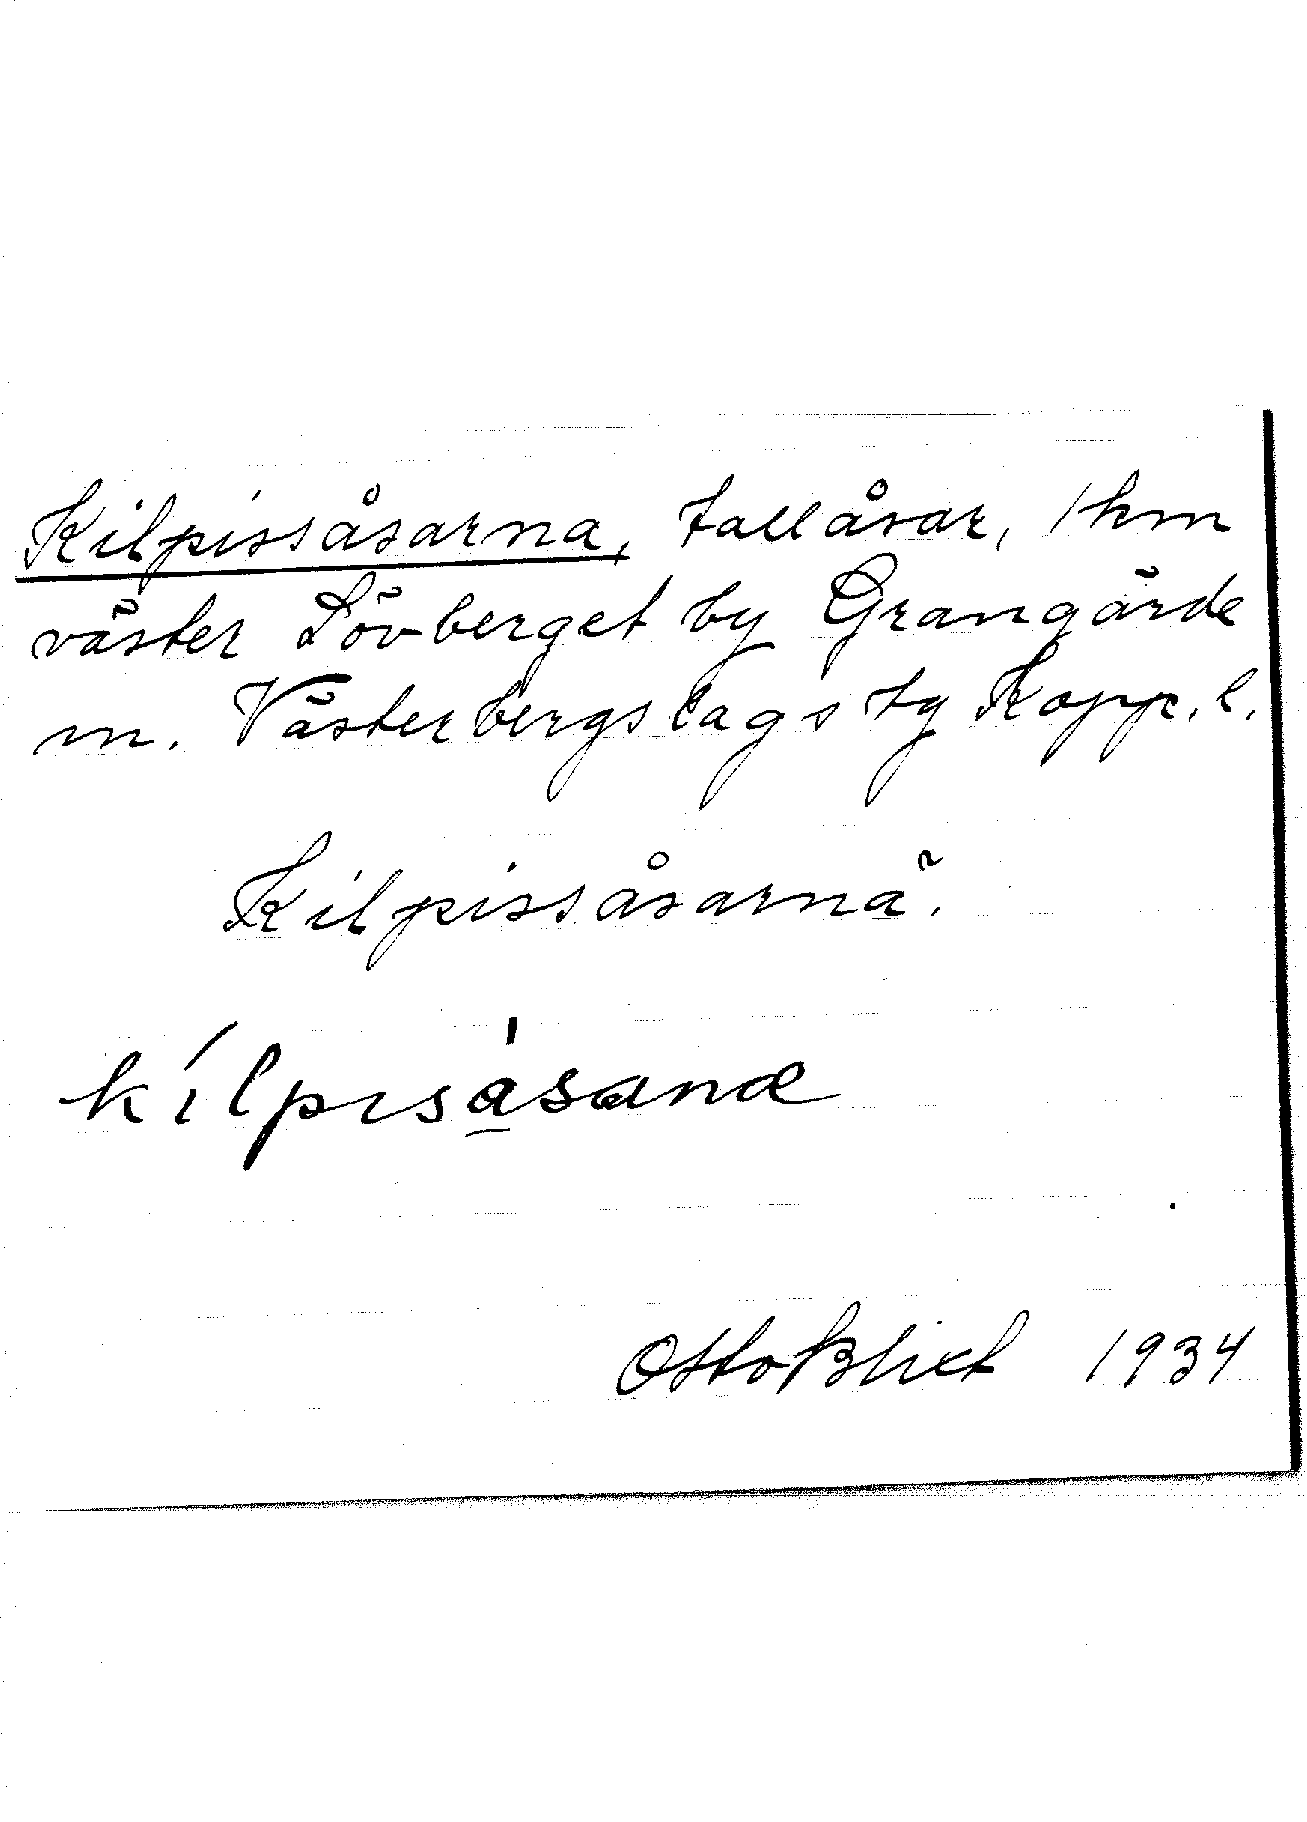 Kilpissåsarna, tallåsar, 1 km
väster Lövberget by Grangärde
m. Västerbergslags tg Kopp. l.
Kilpissåsarnä.
kilpisåsanæ
Otto Blixt 1934